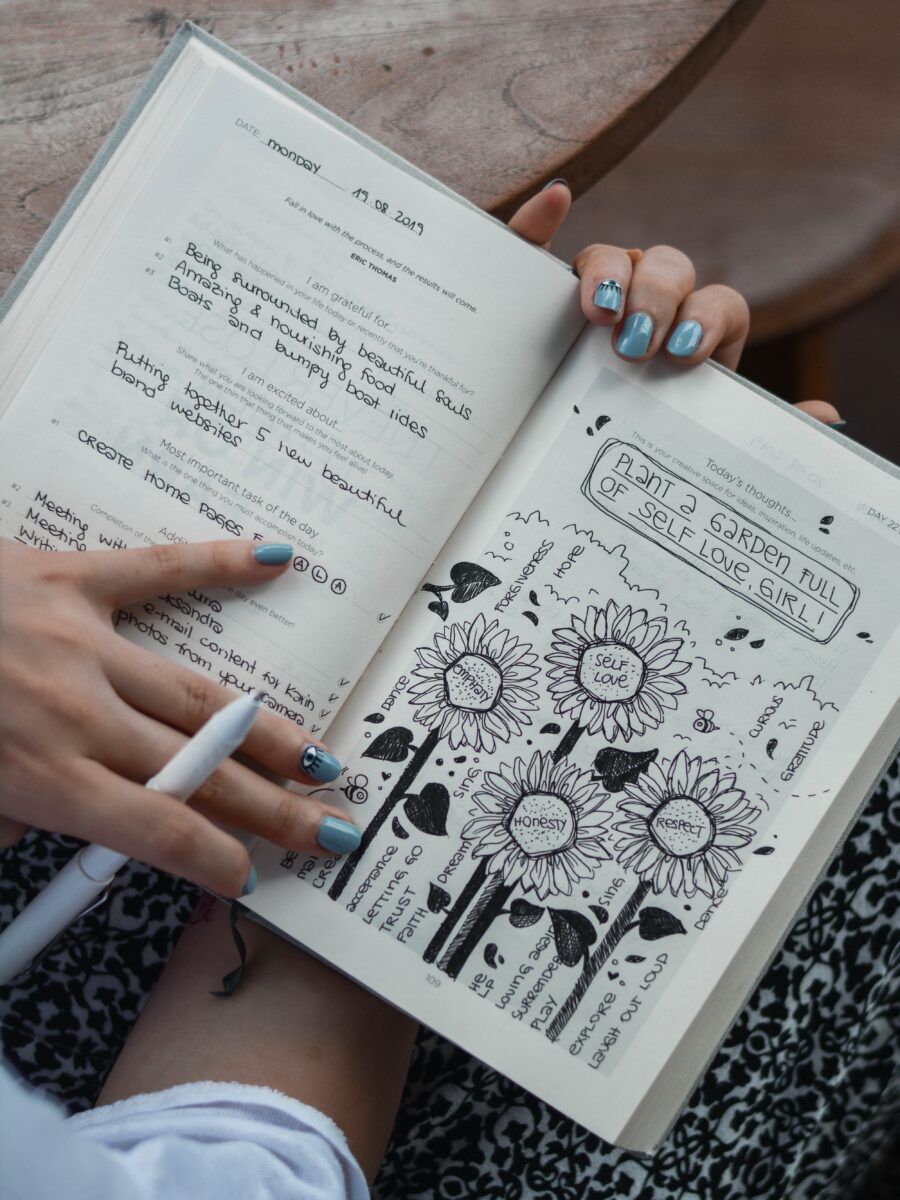 DATE: monday 19.08.2019
Fall in love with the process, and the results will come
ERIC THOMAS
I am grateful for...
What has happened in your life today or recently that you're thankful for?
#1 Being surrounded by beautiful souls
#2 Amazing & nourishing food
#3 Boats and bumpy boat rides
I am excited about...
Share what you are looking forward to the most about today.
The one thin that thing that makes you feel alive!
Putting together 5 new beautiful
brand and websites
Most important task of the day
What is the one thing you must accomplish today?
#1 create Home pages
A L A
#2 Meeting
#3 Meeting
e-mail content for Karin
photos from your camera
DAY 22
Today's thoughts...
This is your creative space for ideas, inspiration, life updates, etc
PLANT A GARDEN FULL
OF SELF LOVE, GIRL!
FORGIVENESS
HOPE
SELF
LOVE
CURIOUS
GRATITUDE
DANCE
SING
HONESTY
RESPECT
acceptance
LETTING GO
TRUST
FAITH
DREAM
HE
LP
LOVING again
SURRENDER
PLAY
SING
Dance
EXPLORE
LAUGH OUT LOUD
109